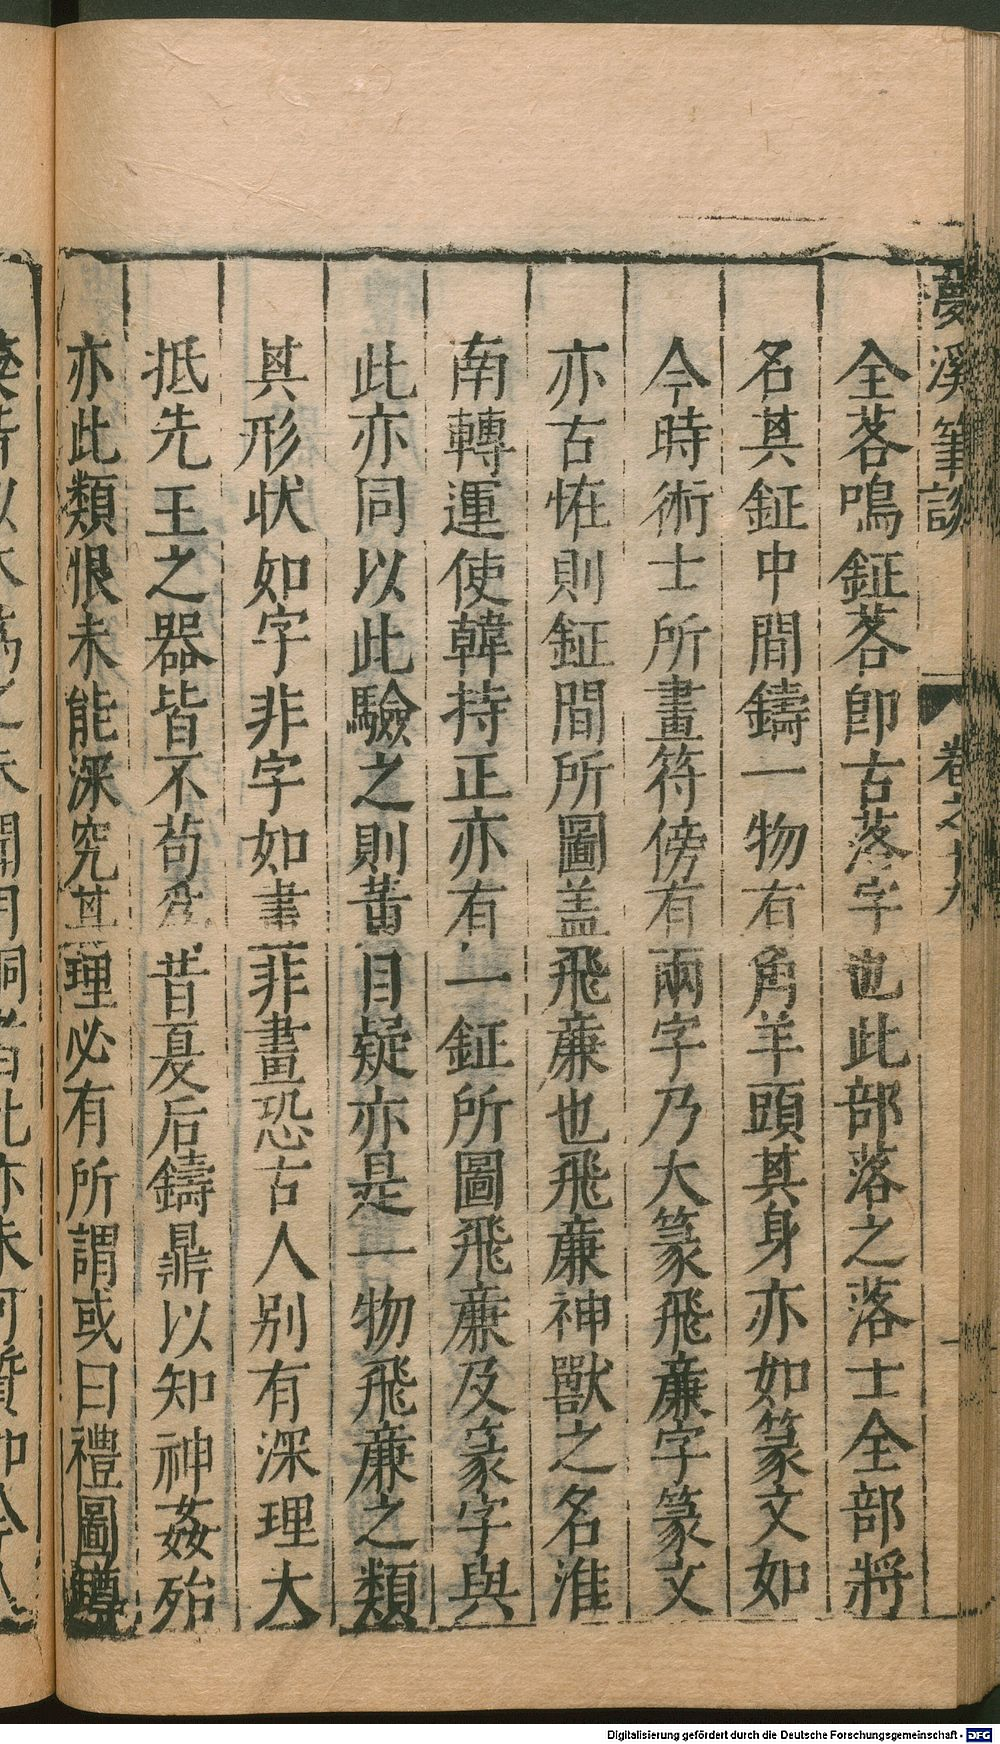 夢溪筆談 卷之十九
全茖鳴鉦茖卽古落字也此部落之落士全部將
名其鉦中間鑄一物有角羊頭其身亦如篆文如
今時術士所畫符傍有兩字乃大篆飛廉字篆文
亦古恠則鉦間所圖盖飛廉也飛廉神獸之名淮
南轉運使韓持正亦有一鉦所圖飛廉及篆字與
此亦同以此驗之則黃目疑亦是一物飛廉之類
其形狀如字非字如畫非畫恐古人别有深理大
抵先王之器皆不苟爲昔夏后鑄鼎以知神姦殆
亦此類恨未能深究其理必有所謂或曰禮圖罇
Digitalisierung gefördert durch die Deutsche Forschungsgemeinschaft - DFG